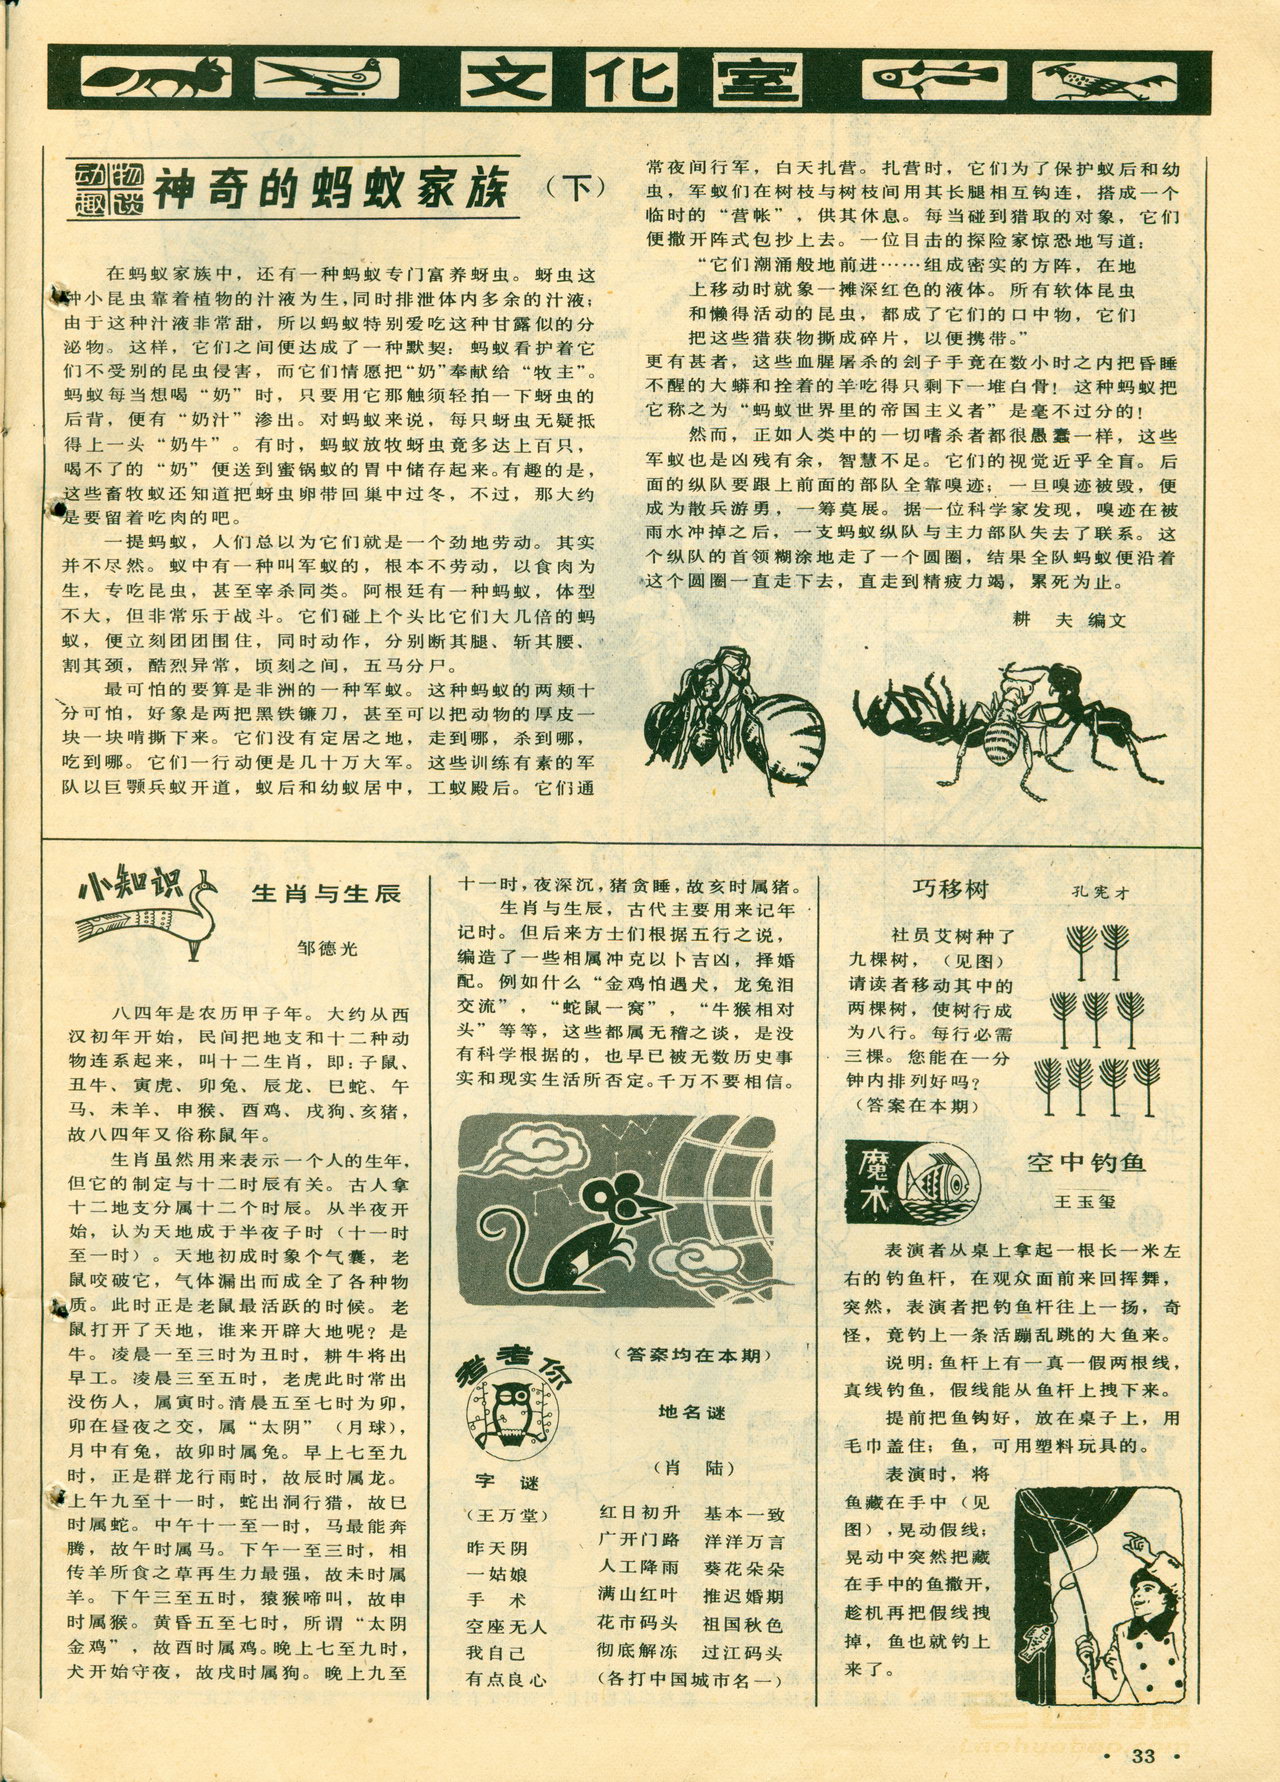 文化室
动物趣谈
神奇的蚂蚁家族（下）
在蚂蚁家族中，还有一种蚂蚁专门富养蚜虫。蚜虫这
种小昆虫靠着植物的汁液为生，同时排泄体内多余的汁液；
由于这种汁液非常甜，所以蚂蚁特别爱吃这种甘露似的分
泌物。这样，它们之间便达成了一种默契：蚂蚁看护着它
们不受别的昆虫侵害，而它们情愿把“奶”奉献给“牧主”。
蚂蚁每当想喝“奶”时，只要用它那触须轻拍一下蚜虫的
后背，便有“奶汁”渗出。对蚂蚁来说，每只蚜虫无疑抵
得上一头“奶牛”。有时，蚂蚁放牧蚜虫竟多达上百只，
喝不了的“奶”便送到蜜锅蚁的胃中储存起来。有趣的是，
这些畜牧蚁还知道把蚜虫卵带回巢中过冬，不过，那大约
是要留着吃肉的吧。
一提蚂蚁，人们总以为它们就是一个劲地劳动。其实
并不尽然。蚁中有一种叫军蚁的，根本不劳动，以食肉为
生，专吃昆虫，甚至宰杀同类。阿根廷有一种蚂蚁，体型
不大，但非常乐于战斗。它们碰上个头比它们大几倍的蚂
蚁，便立刻团团围住，同时动作，分别断其腿、斩其腰、
割其颈，酷烈异常，顷刻之间，五马分尸。
最可怕的要算是非洲的一种军蚁。这种蚂蚁的两颊十
分可怕，好象是两把黑铁镰刀，甚至可以把动物的厚皮一
块一块啃撕下来。它们没有定居之地，走到哪，杀到哪，
吃到哪。它们一行动便是几十万大军。这些训练有素的军
队以巨颚兵蚁开道，蚁后和幼蚁居中，工蚁殿后。它们通
常夜间行军，白天扎营。扎营时，它们为了保护蚁后和幼
虫，军蚁们在树枝与树枝间用其长腿相互钩连，搭成一个
临时的“营帐”，供其休息。每当碰到猎取的对象，它们
便撒开阵式包抄上去。一位目击的探险家惊恐地写道：
“它们潮涌般地前进……组成密实的方阵，在地
上移动时就象一摊深红色的液体。所有软体昆虫
和懒得活动的昆虫，都成了它们的口中物，它们
把这些猎获物撕成碎片，以便携带。”
更有甚者，这些血腥屠杀的刽子手竟在数小时之内把昏睡
不醒的大蟒和拴着的羊吃得只剩下一堆白骨！这种蚂蚁把
它称之为“蚂蚁世界里的帝国主义者”是毫不过分的！
然而，正如人类中的一切嗜杀者都很愚蠢一样，这些
军蚁也是凶残有余，智慧不足。它们的视觉近乎全盲。后
面的纵队要跟上前面的部队全靠嗅迹；一旦嗅迹被毁，便
成为散兵游勇，一筹莫展。据一位科学家发现，嗅迹在被
雨水冲掉之后，一支蚂蚁纵队与主力部队失去了联系。这
个纵队的首领糊涂地走了一个圆圈，结果全队蚂蚁便沿着
这个圆圈一直走下去，直走到精疲力竭，累死为止。
耕　夫 编文
小知识
生肖与生辰
邹德光
八四年是农历甲子年。大约从西
汉初年开始，民间把地支和十二种动
物连系起来，叫十二生肖，即：子鼠、
丑牛、寅虎、卯兔、辰龙、巳蛇、午
马、未羊、申猴、酉鸡、戌狗、亥猪，
故八四年又俗称鼠年。
生肖虽然用来表示一个人的生年，
但它的制定与十二时辰有关。古人拿
十二地支分属十二个时辰。从半夜开
始，认为天地成于半夜子时（十一时
至一时）。天地初成时象个气囊，老
鼠咬破它，气体漏出而成全了各种物
质。此时正是老鼠最活跃的时候。老
鼠打开了天地，谁来开辟大地呢？是
牛。凌晨一至三时为丑时，耕牛将出
早工。凌晨三至五时，老虎此时常出
没伤人，属寅时。清晨五至七时为卯，
卯在昼夜之交，属“太阴”（月球），
月中有兔，故卯时属兔。早上七至九
时，正是群龙行雨时，故辰时属龙。
上午九至十一时，蛇出洞行猎，故巳
时属蛇。中午十一至一时，马最能奔
腾，故午时属马。下午一至三时，相
传羊所食之草再生力最强，故未时属
羊。下午三至五时，猿猴啼叫，故申
时属猴。黄昏五至七时，所谓“太阴
金鸡”，故酉时属鸡。晚上七至九时，
犬开始守夜，故戌时属狗。晚上九至
十一时，夜深沉，猪贪睡，故亥时属猪。
生肖与生辰，古代主要用来记年
记时。但后来方士们根据五行之说，
编造了一些相属冲克以卜吉凶，择婚
配。例如什么“金鸡怕遇犬，龙兔泪
交流”，“蛇鼠一窝”，“牛猴相对
头”等等，这些都属无稽之谈，是没
有科学根据的，也早已被无数历史事
实和现实生活所否定。千万不要相信。
考考你
（答案均在本期）
字　谜
（王万堂）
昨天阴
一姑娘
手　术
空座无人
我自己
有点良心
地名谜
（肖　陆）
红日初升　基本一致
广开门路　洋洋万言
人工降雨　葵花朵朵
满山红叶　推迟婚期
花市码头　祖国秋色
彻底解冻　过江码头
（各打中国城市名一）
巧移树
孔宪才
社员艾树种了
九棵树，（见图）
请读者移动其中的
两棵树，使树行成
为八行。每行必需
三棵。您能在一分
钟内排列好吗？
（答案在本期）
魔术
空中钓鱼
王玉玺
表演者从桌上拿起一根长一米左
右的钓鱼杆，在观众面前来回挥舞，
突然，表演者把钓鱼杆往上一扬，奇
怪，竟钓上一条活蹦乱跳的大鱼来。
说明：鱼杆上有一真一假两根线，
真线钓鱼，假线能从鱼杆上拽下来。
提前把鱼钩好，放在桌子上，用
毛巾盖住；鱼，可用塑料玩具的。
表演时，将
鱼藏在手中（见
图），晃动假线；
晃动中突然把藏
在手中的鱼撒开，
趁机再把假线拽
掉，鱼也就钓上
来了。
· 33 ·